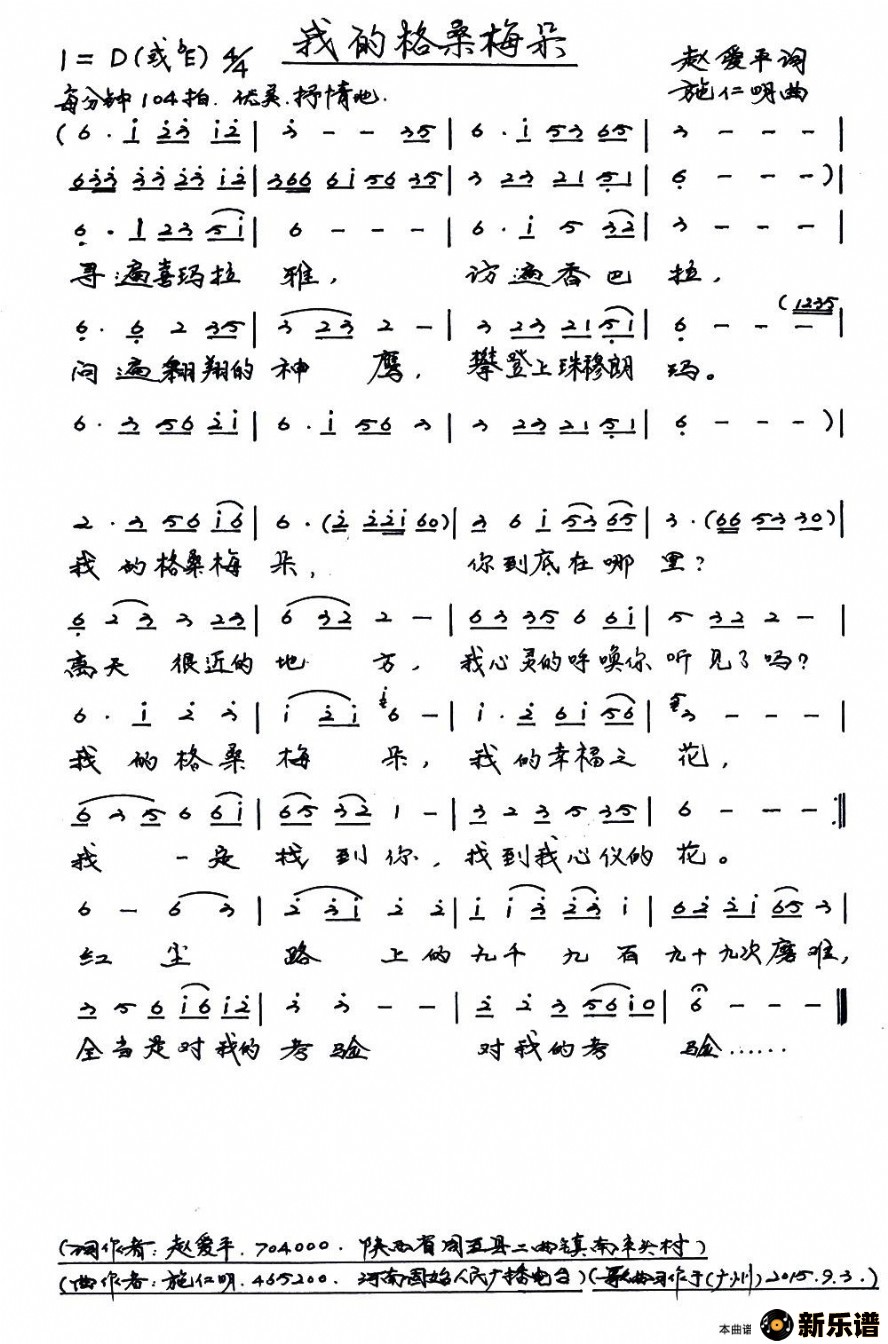 我的格桑梅朵
1=D(或♭E) 4/4
赵爱平词
每分钟104拍. 优美.抒情地.
施仁明曲
(6·i 23 i2 | 3 - - 35 | 6·i 53 65 | 3 - - - |
633 33 23 i2 | 366 6i 56 35 | 3 23 21 51 | 6 - - - )|
6·1 23 5i | 6 - - - | 6·i 5 32 | 3 - - - |
寻遍喜玛拉雅, 访遍香巴拉,
(1235
6·6 2 35 | 3 23 2 - | 3 23 21 51 | 6 - - -
问遍翱翔的神鹰, 攀登上珠穆朗玛。
6·3 56 2i | 6·i 56 3 | 3 23 21 51 | 6 - - - )|
2·3 56 i6 | 6·(2 22i 60)| 3 6 i 53 65 | 3·(66 53 30)|
我的格桑梅朵, 你到底在哪里?
6 2 3 3 23 | 6 32 2 - | 63 35 6 6i | 5 32 2 - |
离天很近的地方, 我心灵的呼唤你听见了吗?
6·i 2 3 | i 2i 6 - | i·2 6i 56 | 3 - - - |
我的格桑梅朵, 我的幸福之花,
6 3 5 6 6i | 65 32 1 - | 3 2 3 5 35 | 6 - - - :||
我一定找到你, 找到我心仪的花。
6 - 6 3 | 2 3i 2 2 | i i3 23 i | 62 2i 65 3 |
红尘路上的九千九百九十九次磨难,
3 5 6 i6 i2 | 3 3 - - | 2 2 3 56 i0 | 6 - - - ||
全当是对我的考验 对我的考验……
(词作者:赵爱平.704000. 陕西省周至县二曲镇南
(曲作者:施仁明.465200. 河南固始人民广播电台)(歌曲写作于(广州)2015.9.3.)
本曲谱 新乐谱